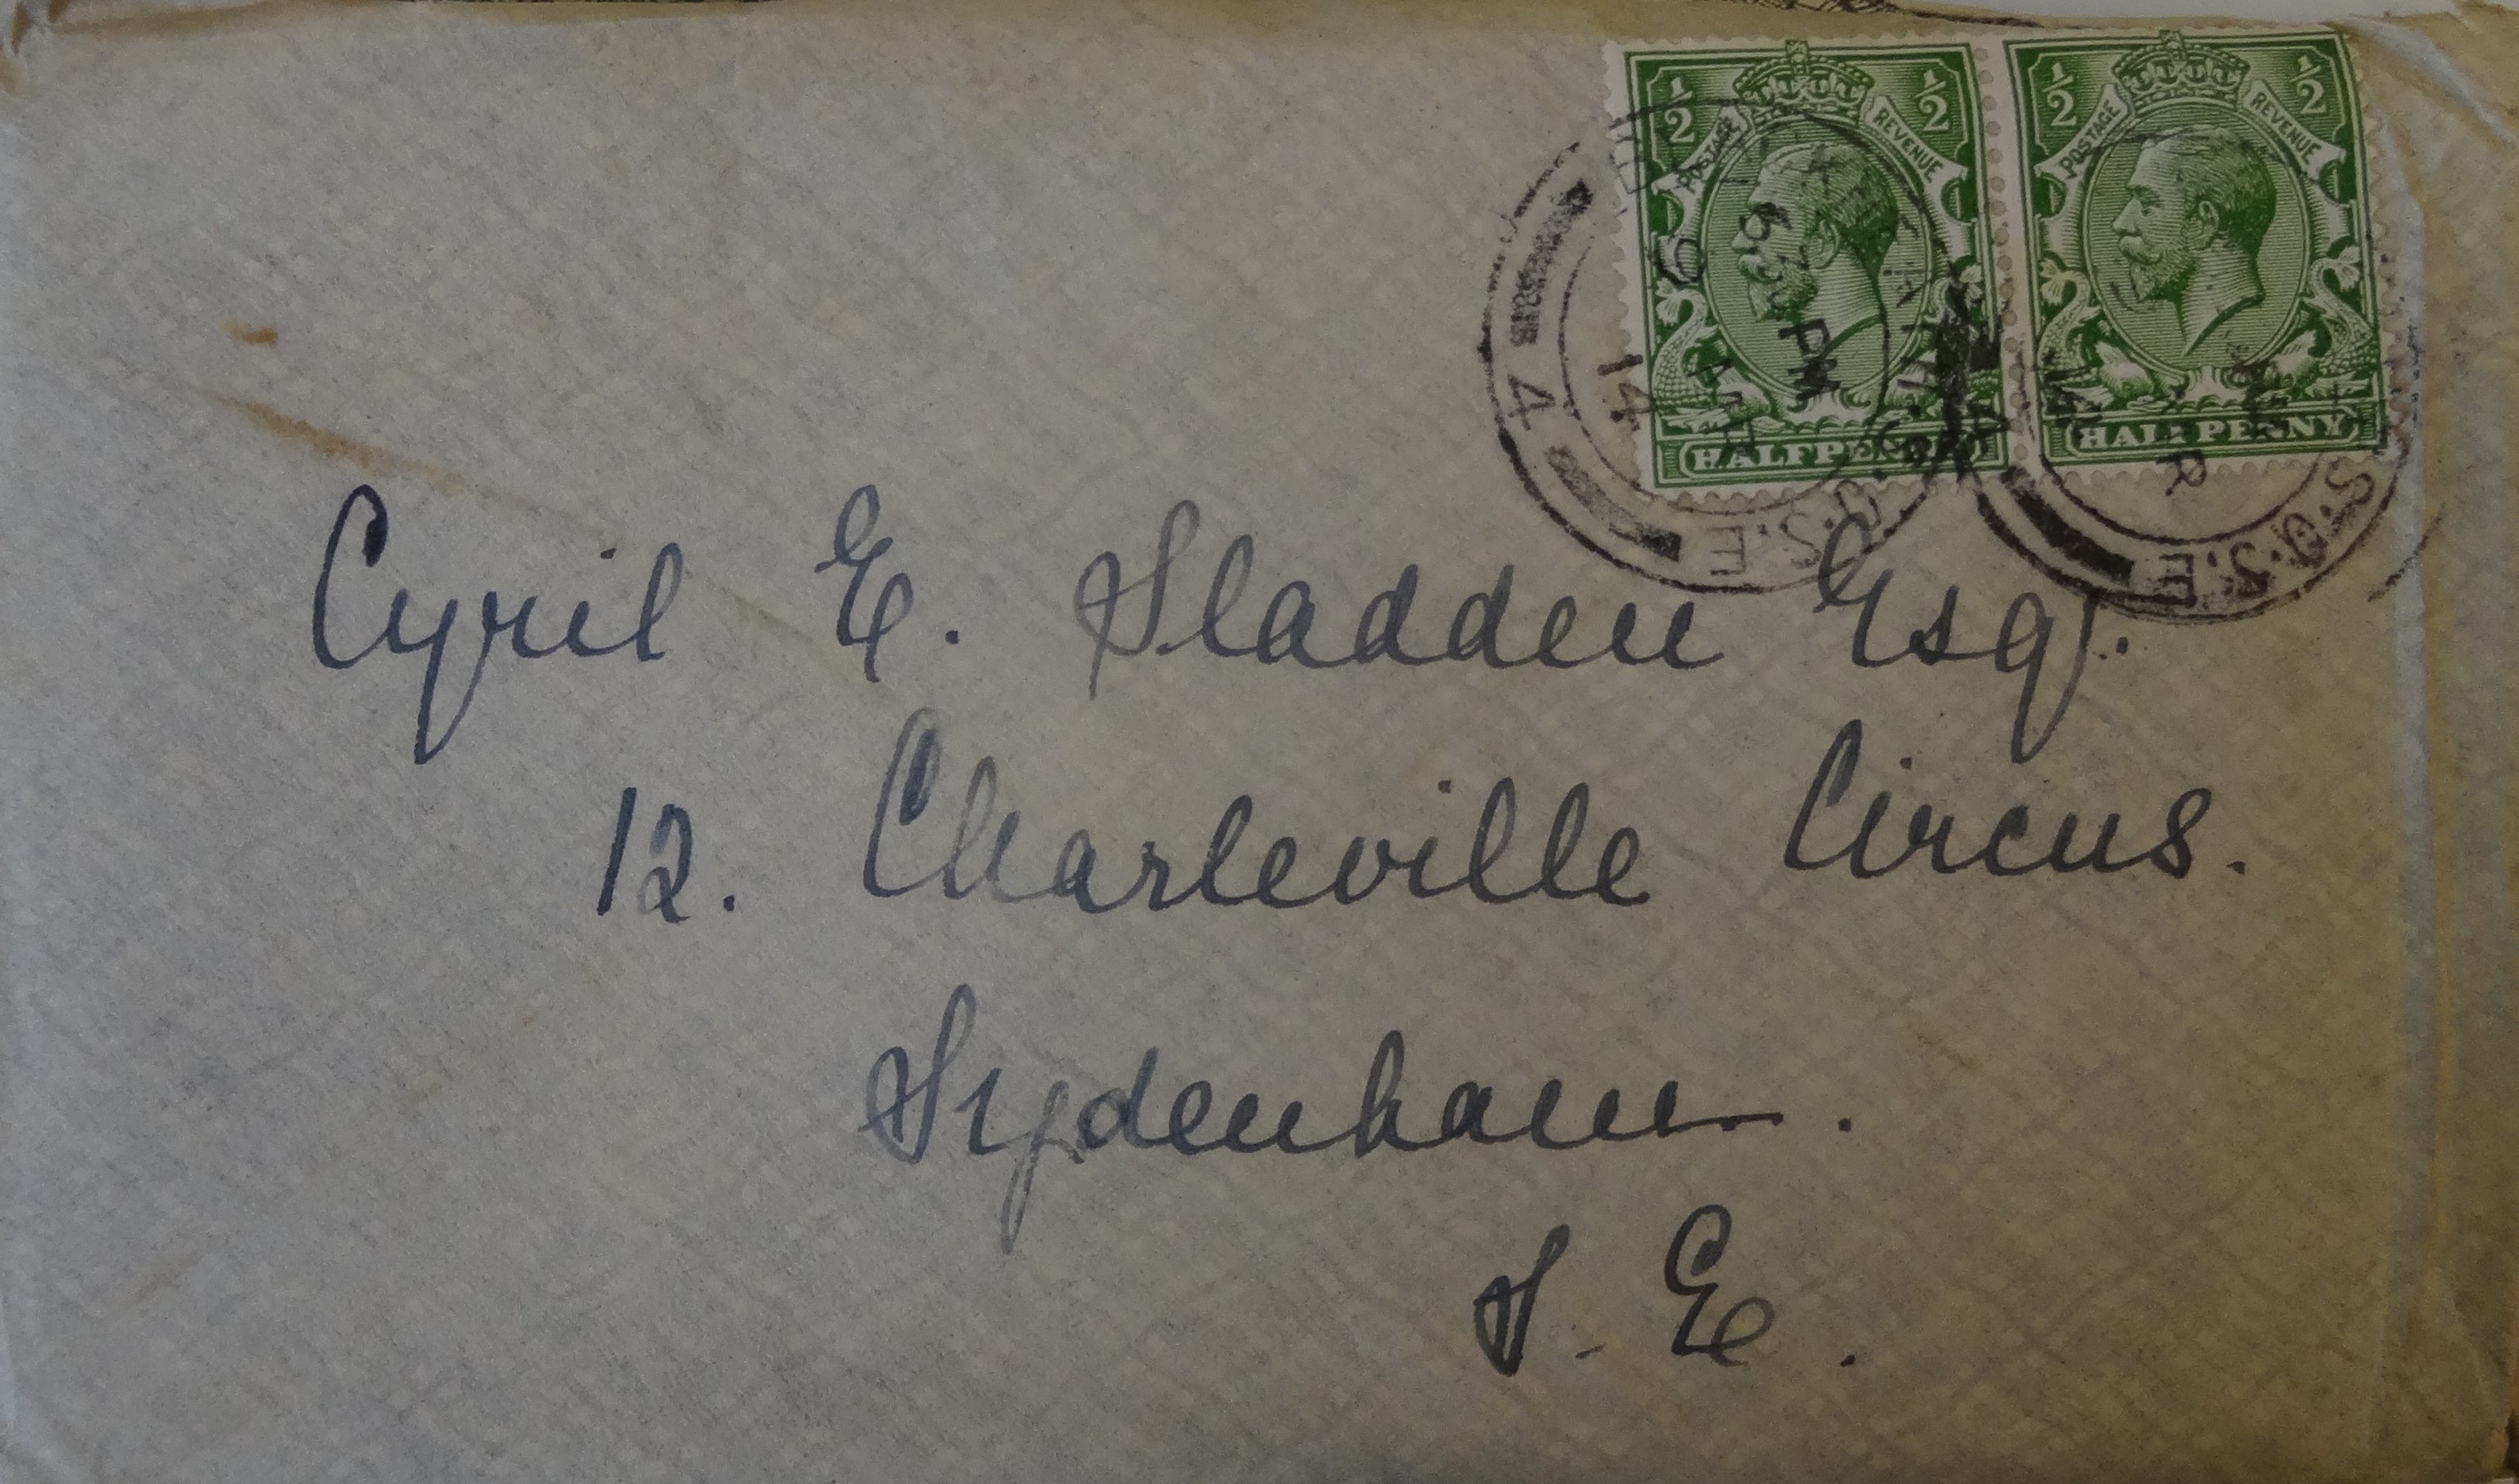 ½ ½
POSTAGE REVENUE
HALFPENNY
½ ½
POSTAGE REVENUE
HALFPENNY
6 30 PM
9
AP
14
4
S.O.S.E
4
14
S.O.S.E
Cyril E. Sladden Esq.
12. Charleville Circus.
Sydenham.
S. E.